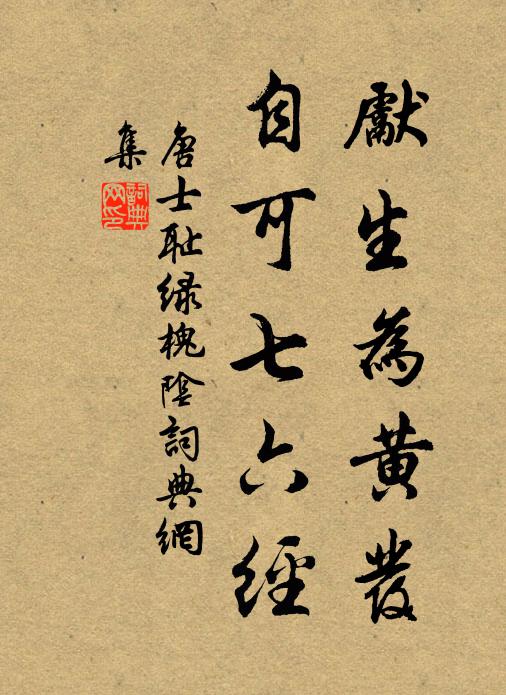 獻生為黄發
自可七六經
唐士耻綠槐陰詞典網
集
詞典網印